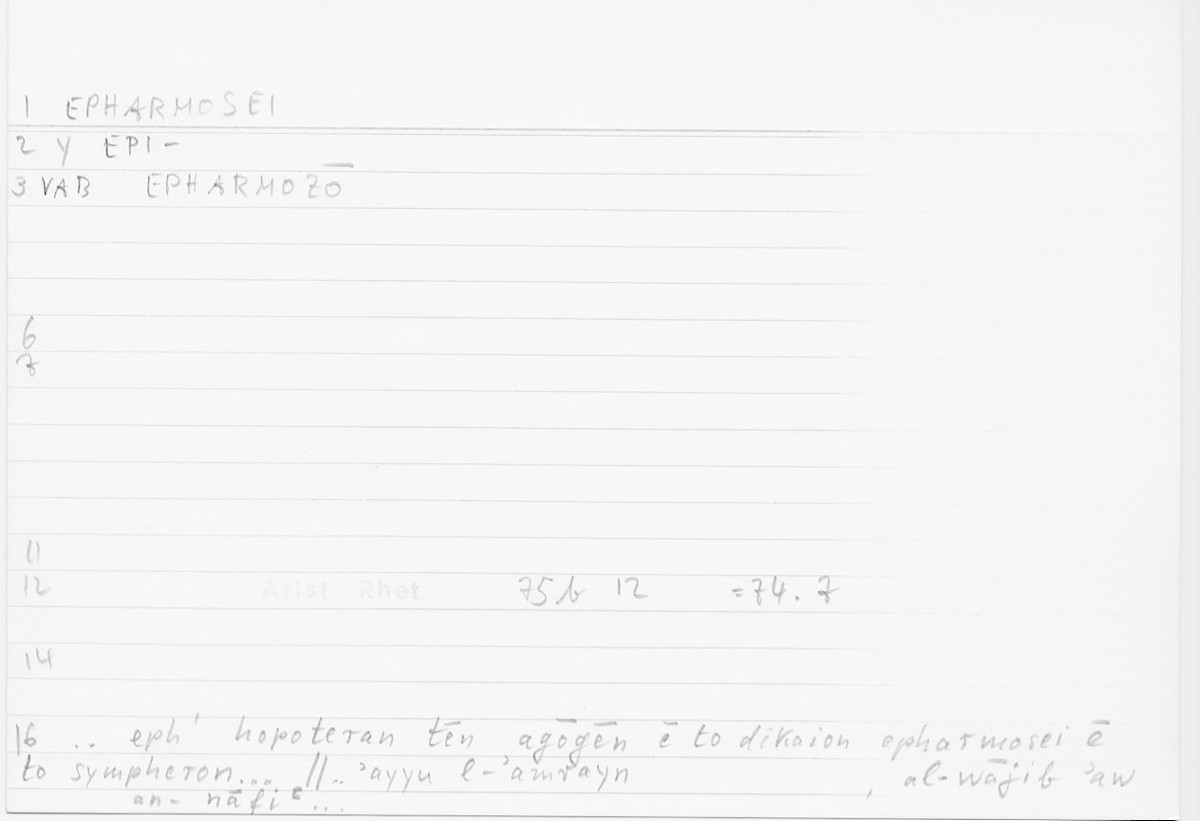 1 EPHARMOSEI
2 Y EPI-
3 VAB EPHARMOZŌ
6
7
11
12 Arist Rhet 75b 12 =74.7
14
16 .. eph' hopoteran tēn agōgēn ē to dikaion epharmosei ē
to sympheron... //.. ʾayyu l-ʾamrayn , al-wājib ʾaw
an-nāfiʿ...